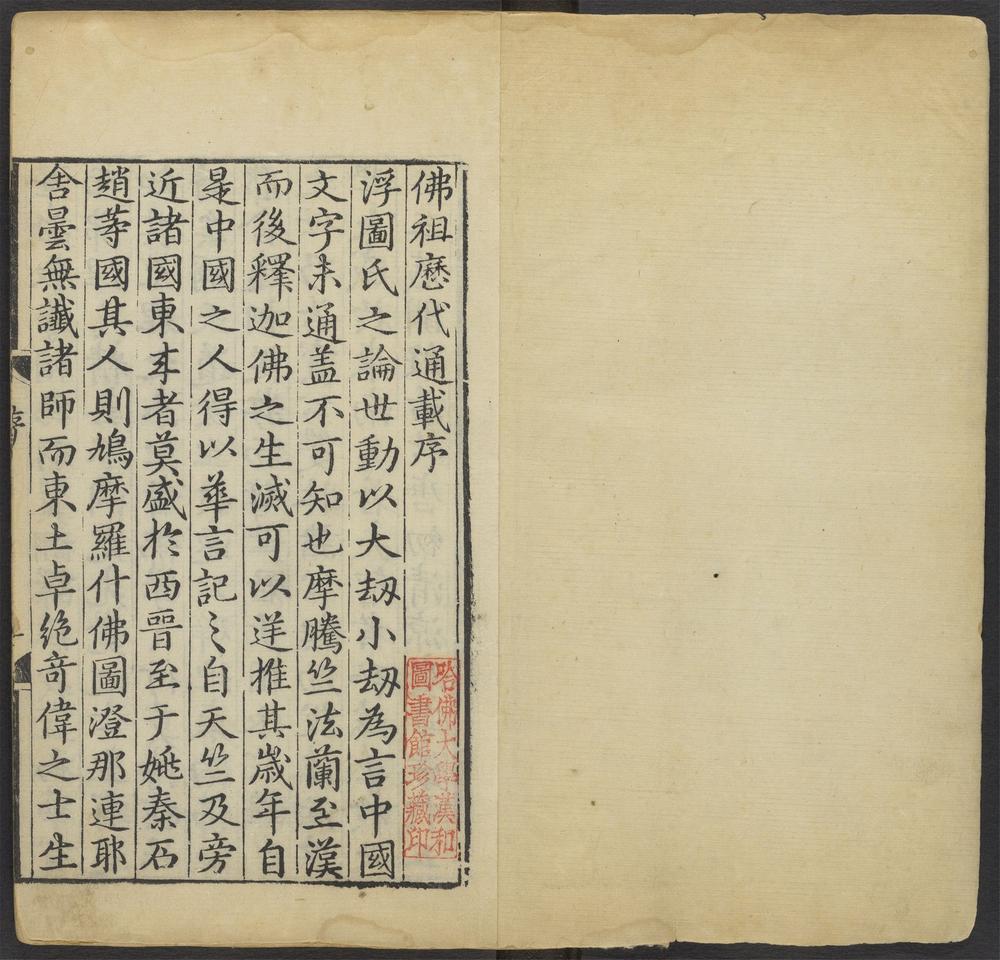 佛祖歷代通載序
哈佛大學漢和
圖書館珍藏印
浮圖氏之論世動以大刼小刼為言中國
文字未通盖不可知也摩騰竺法蘭至漢
而後釋迦佛之生滅可以逆推其歲年自
是中國之人得以華言記之自天竺及旁
近諸國東来者莫盛於西晉至于姚秦石
趙等國其人則鳩摩羅什佛圖澄那連耶
舍曇無讖諸師而東土卓絶竒偉之士生
序
一